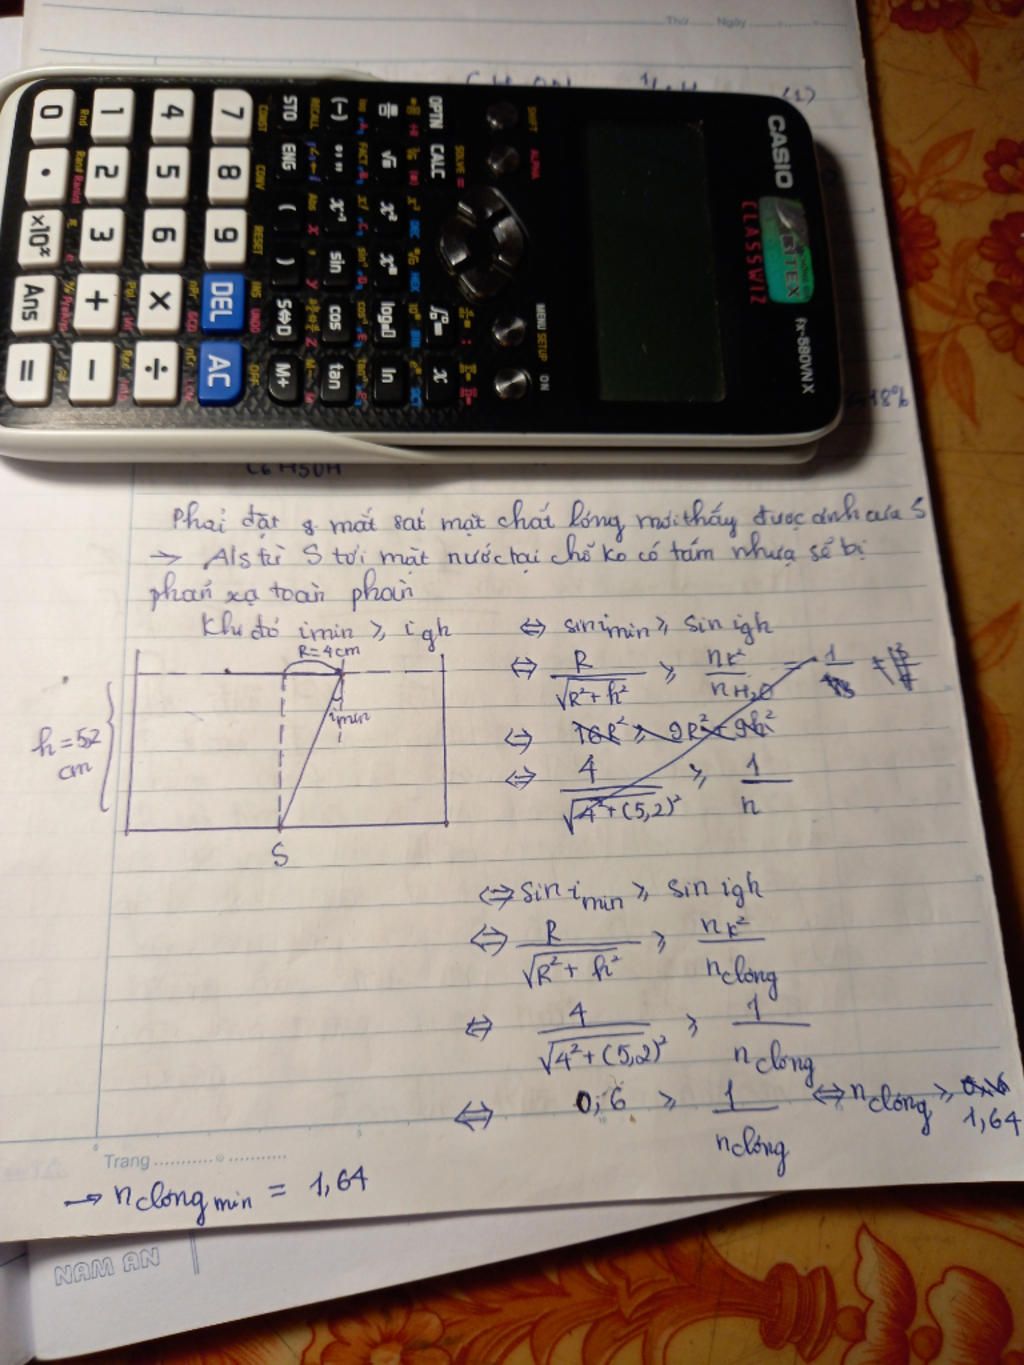 Thứ ........ Ngày
(1)
CASIO
CLASSWIZ
BITEX
fx-580VN X
SHIFT ALPHA
MENU SETUP ON
OPTN CALC x
√ x² log ln
(−) x⁻¹ sin cos tan
STO ENG ( ) S⇔D M+
7 8 9 DEL AC
4 5 6 × ÷
1 2 3 + −
0 . ×10ˣ Ans =
18%
C6H5OH
Phải đặt mắt sát mặt chất lỏng mới thấy được ảnh của S
→ A/s từ S tới mặt nước tại chỗ ko có tấm nhựa sẽ bị
phản xạ toàn phần
Khi đó imin ≥ igh
⇔ sin imin ≥ sin igh
R=4cm
imin
h = 5,2
cm
S
⇔ R/√(R²+h²) ≥ nk²/nH₂O = 1
⇔ 16R² ≥ 9R²+9h²
⇔ 4/√(4²+(5,2)²) ≥ 1/n
⇔ sin imin ≥ sin igh
⇔ R/√(R²+h²) ≥ nk²/nclỏng
⇔ 4/√(4²+(5,2)²) ≥ 1/nclỏng
⇔ 0,6 ≥ 1/nclỏng ⇔ nclỏng ≥ 1,64
Trang ...........o...........
→ nclỏng min = 1,64
NAM AN